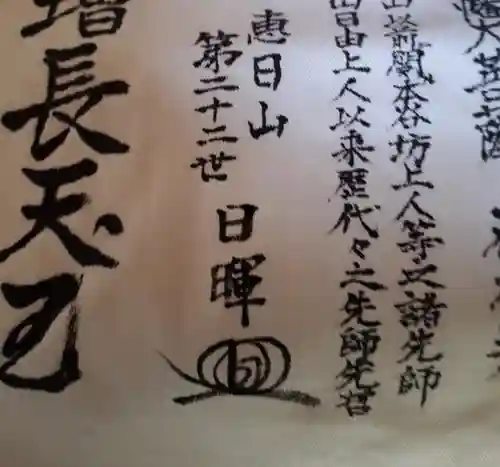 大菩薩
山前関本谷坊上人等之諸先師
日由上人以来歴代々之先師先哲
惠日山
第二十二世
日暉
増長天王